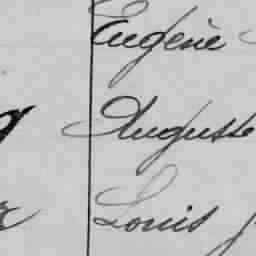 Eugène
Auguste
Louis